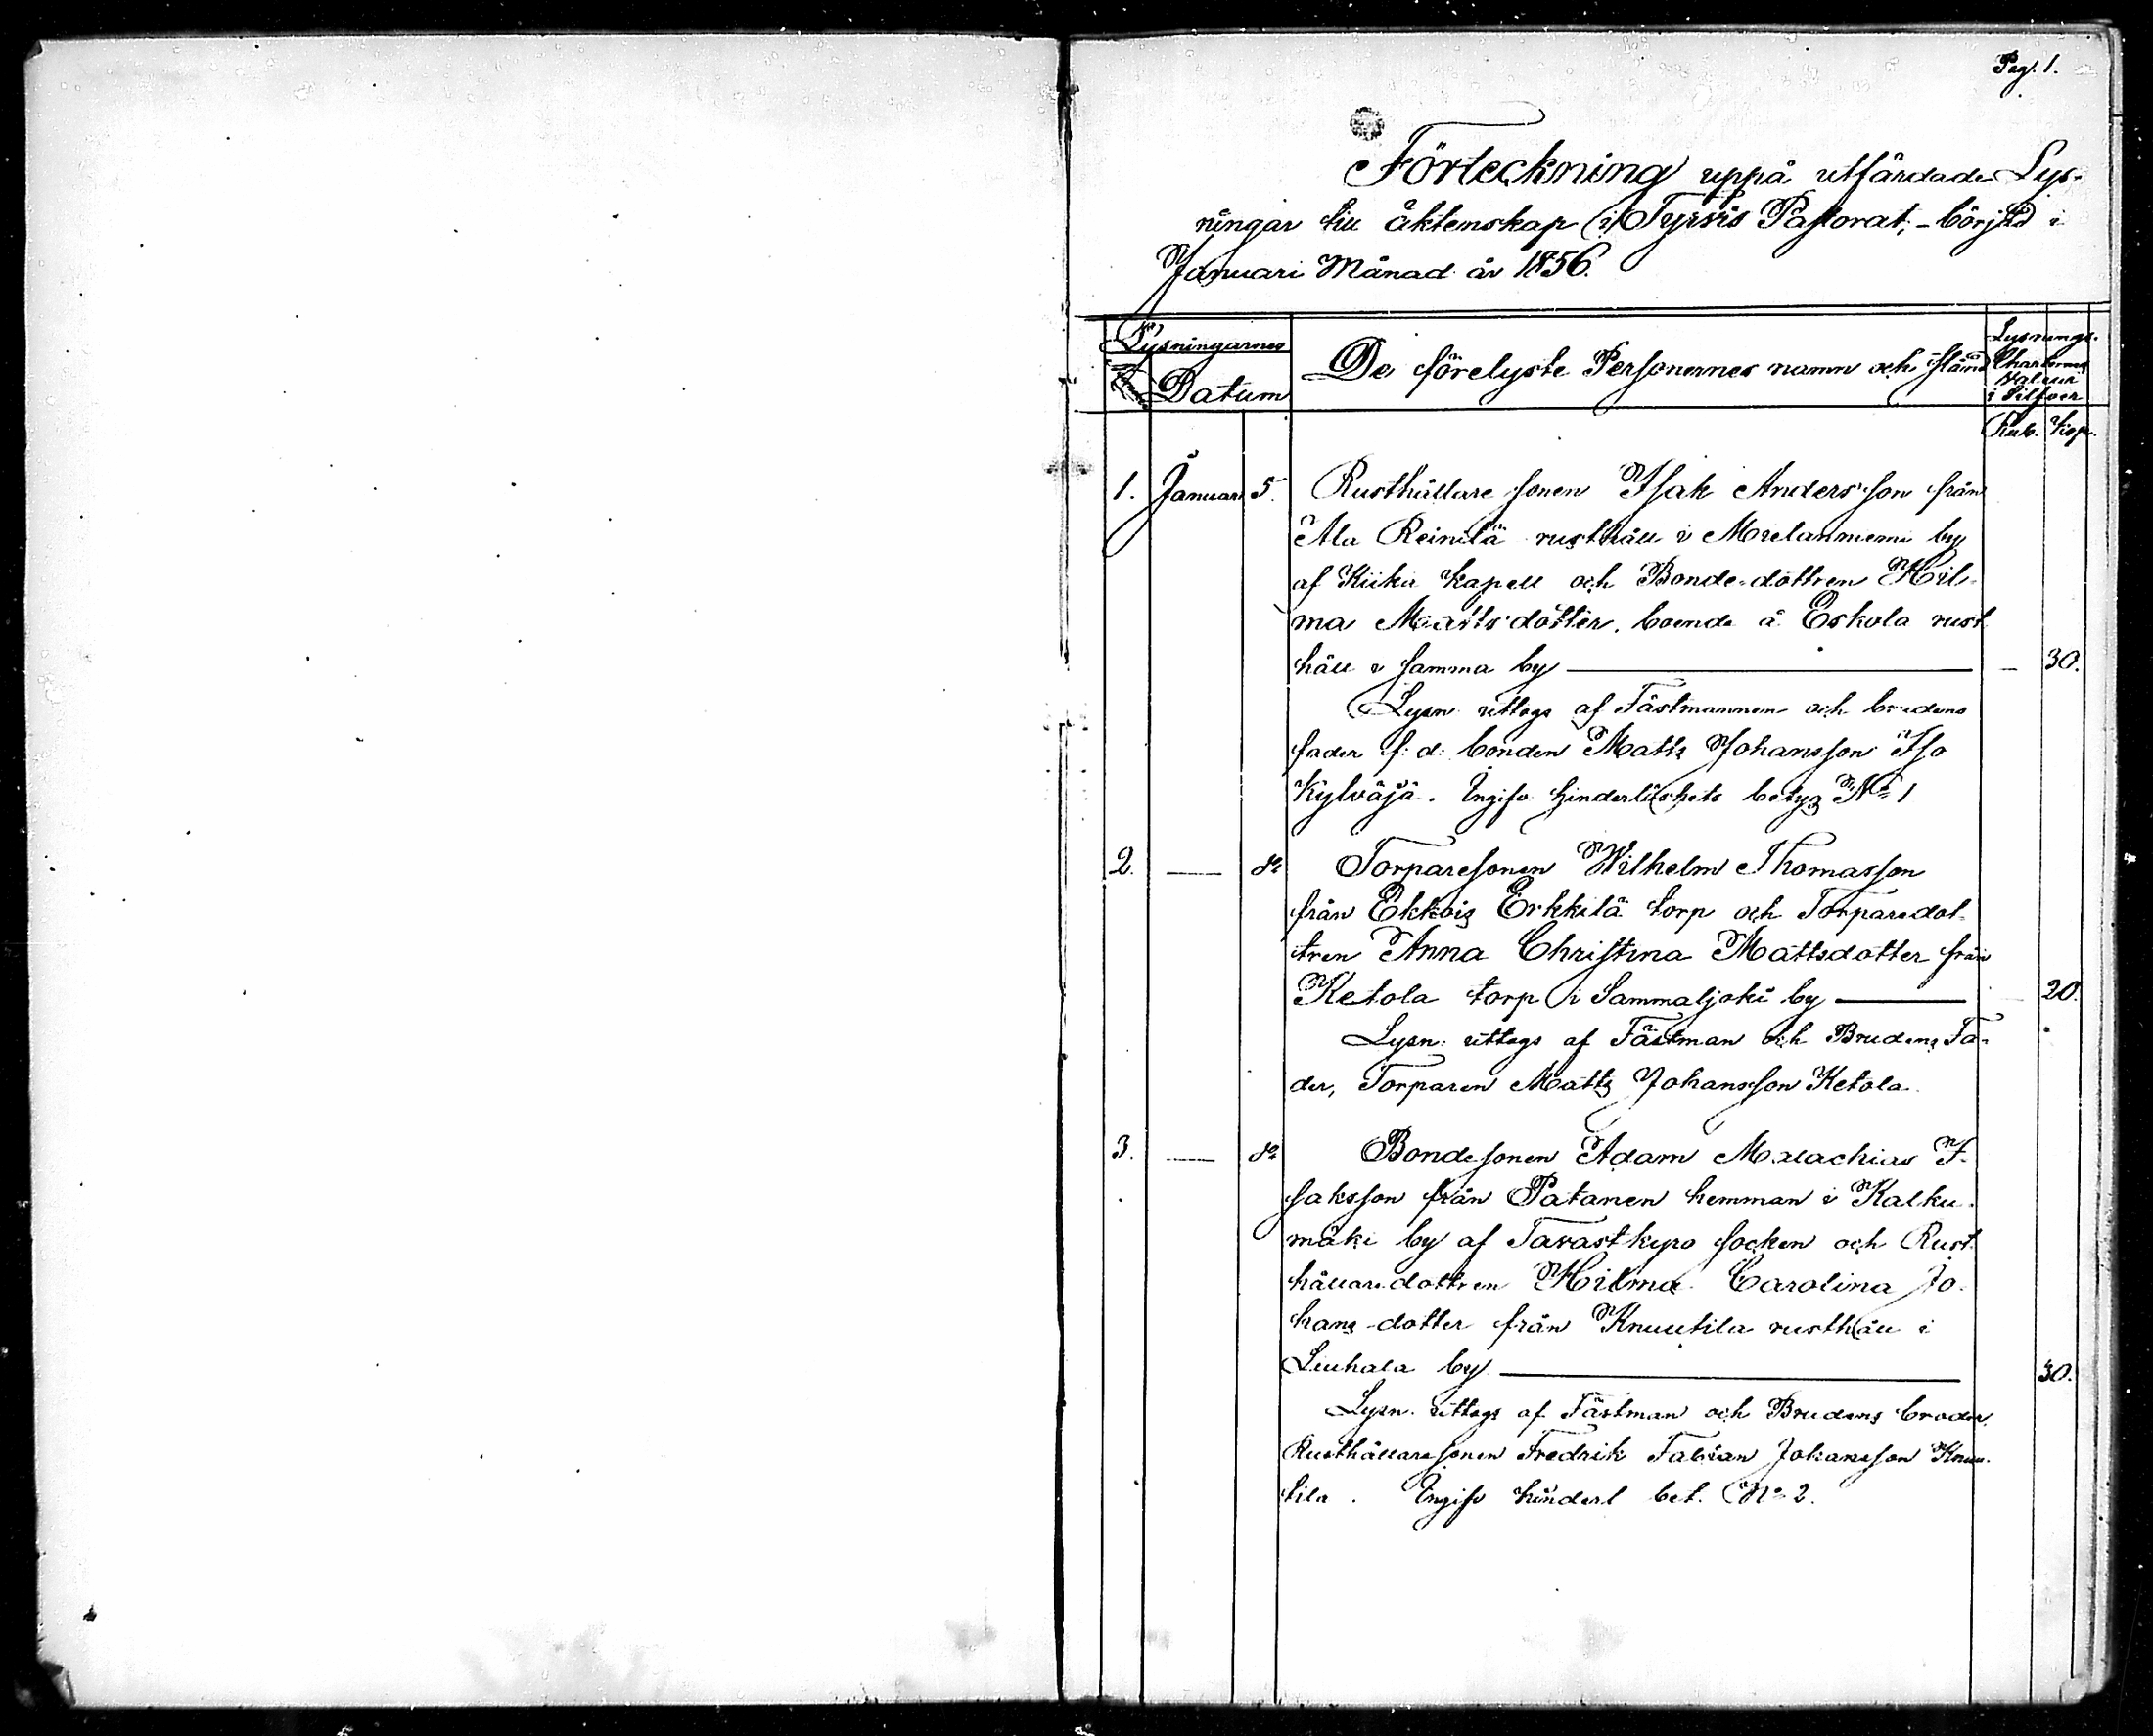 Pag. 1.
Förteckning uppå utfärdade Lys-
ningar till äktenskap i Tyrvis Pastorat, - börjad i
Januari Månad år 1856.
Lysningarnes
Datum
De förelyste Personernes namn och stånd
Lysnings-
Charternes
Valeur
i Silfver
Rub. Kop.
1. Januari 5. Rusthållare sonen Isak Anders'son från
Ala Reinilä rusthåll i Mielanniemi by
af Kiika Kapell och Bonde-dottren Hil-
ma Matts'dotter, boende å Eskola rust
håll i samma by — 30.
Lysn uttogs af Fästmannen och brudens
fader f: d: bonden Matts Johansson Iso
Kylväjä. Ingifv hinderlöshets betyg No 1
2. — do Torparesonen Wilhelm Thomasson
från Ekkois Erkkilä torp och Torparedot-
tren Anna Christina Mattsdotter från
Ketola torp i Sammaljoki by 20.
Lysn: uttogs af Fästman och Brudens Fa-
der, Torparen Matts Johansson Ketola
3. — do Bondesonen Adam Malachias I-
saksson från Patanen hemman i Kalku-
mäki by af Tavastkyro socken och Rust
hållaredottren Hilma Carolina Jo-
hans-dotter från Knuutila rusthåll i
Liuhala by 30.
Lysn. uttogs af Fästman och Brudens broder,
Rusthållaresonen Fredrik Fabian Johansson Knuu-
tila. Ingifv hinderl bet. No 2.